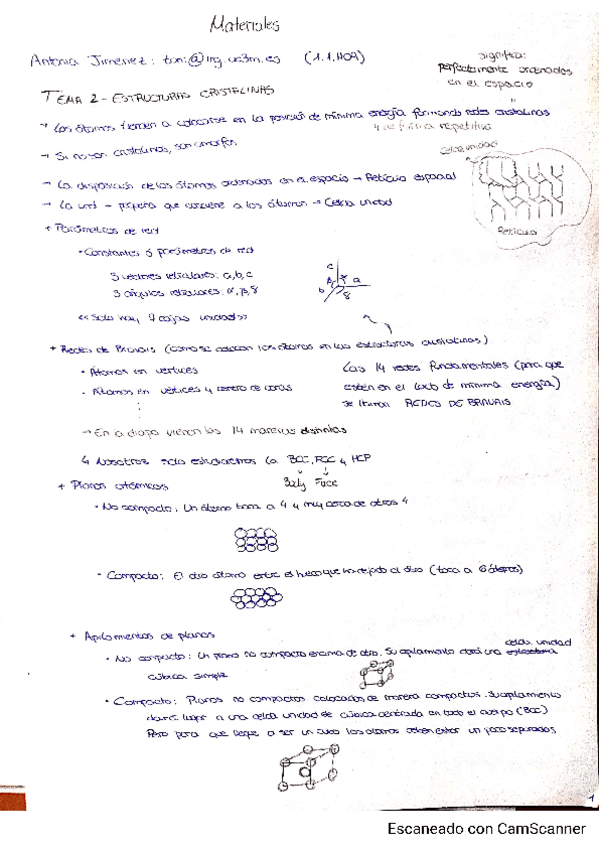 Materiales
Antonia Jimenez: toni@ing.uc3m.es (1.1.H09)
significa:
perfectamente ordenados
en el espacio
TEMA 2 - ESTRUCTURAS CRISTALINAS
→ Los átomos tienden a colocarse en la posición de mínima energía formando redes cristalinas
y de forma repetitiva
→ Si no son cristalinos, son amorfos
Celda unidad
→ La disposición de los átomos ordenados en el espacio → Retículo espacial
→ La unid - pequeña que contiene a los átomos → Celda unidad
Retículo
+ Parámetros de red
• Constantes ó parámetros de red
3 vectores reticulares: a, b, c
3 ángulos reticulares: α, β, γ
c
a
b
<<Solo hay 7 cajas unidad>>
+ Redes de Bravais (como se colocan los átomos en las estructuras cristalinas)
• Átomos en vértices
• Átomos en vértices y centro de caras
Las 14 redes fundamentales (para que
estén en el lado de mínima energía)
se llaman REDES DE BRAVAIS
→ En la diapo vienen las 14 maneras distintas
↳ Nosotros solo estudiaremos la BCC, FCC y HCP
Body Face
+ Planos atómicos
• No compacto: Un átomo toca a 4 y muy cerca de otros 4
• Compacto: El otro átomo entre el hueco que han dejado al otro (toca a 6 átomos)
+ Apilamientos de planos
• No compacto: Un plano no compacto encima de otro. Su apilamiento dará una celda unidad
cúbica simple
• Compacto: Planos no compactos colocados de manera compactos. Su apilamiento
dará lugar a una celda unidad de cúbica centrada en todo el cuerpo (BCC)
Pero para que llegue a ser un cubo los átomos deben estar un poco separados
1
Escaneado con CamScanner